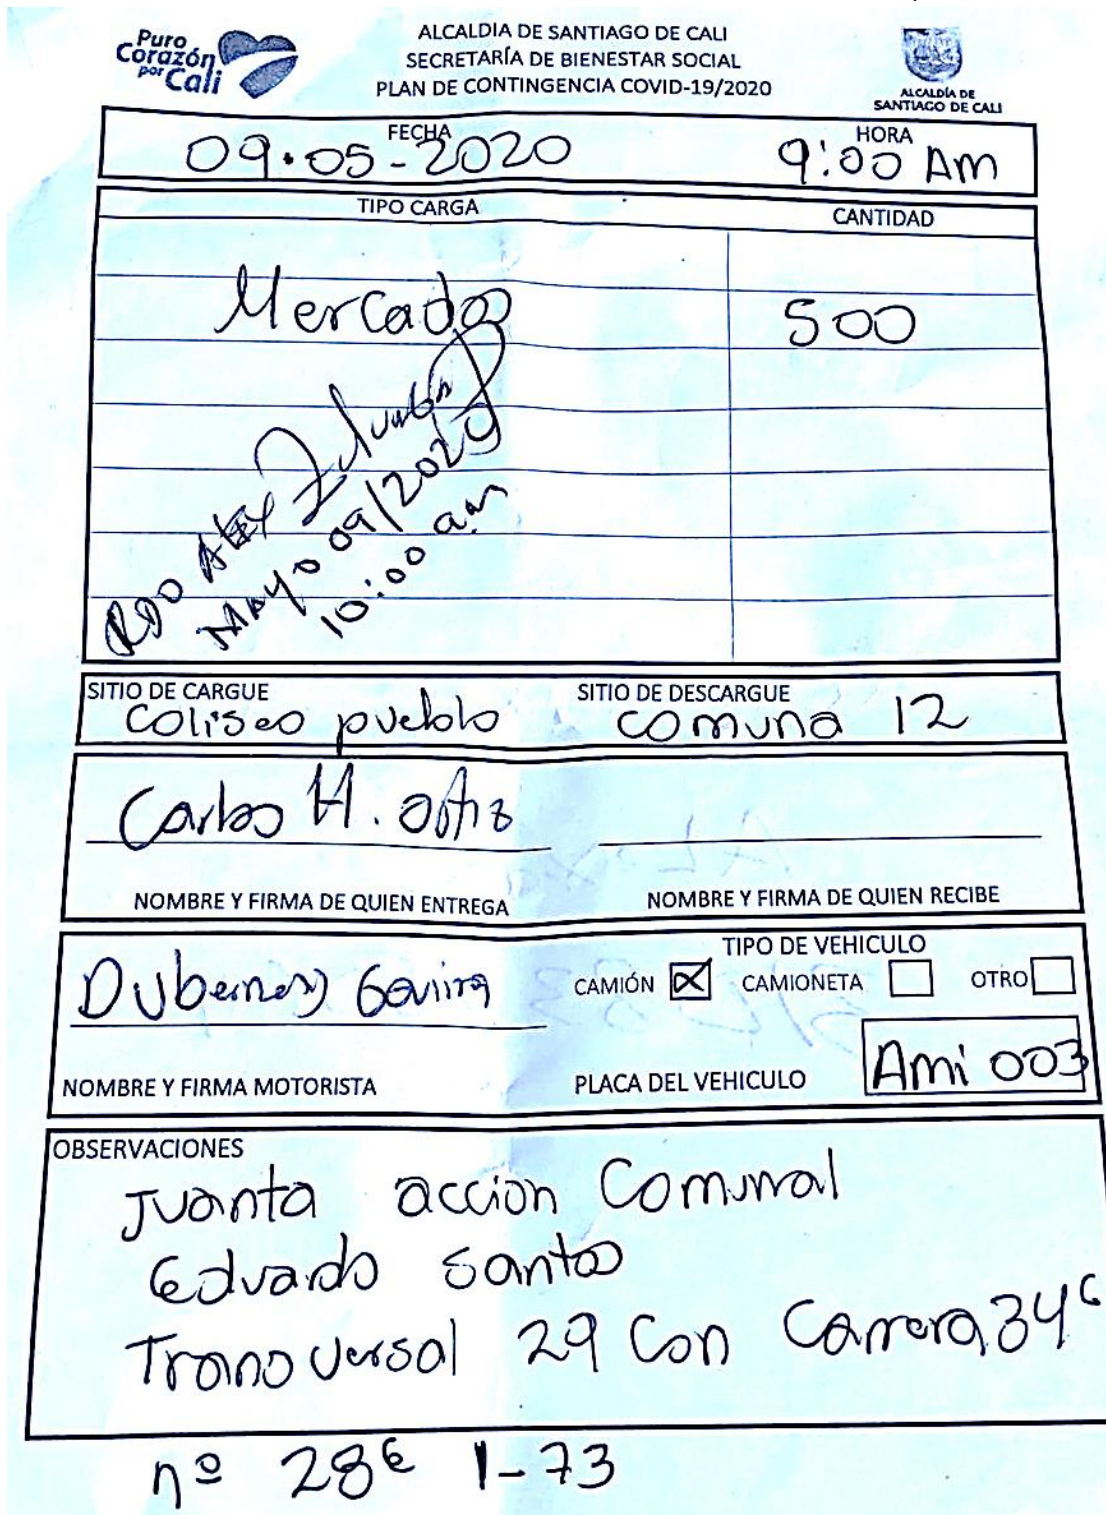 Puro
Corazón
por Cali
ALCALDIA DE SANTIAGO DE CALI
SECRETARÍA DE BIENESTAR SOCIAL
PLAN DE CONTINGENCIA COVID-19/2020
ALCALDÍA DE
SANTIAGO DE CALI
FECHA
09.05-2020
HORA
9:00 Am
TIPO CARGA
CANTIDAD
Mercados
500
RDO Alex
Mayo 09/2020
10:00 am
SITIO DE CARGUE
Coliseo pueblo
SITIO DE DESCARGUE
comuna 12
Carlos H. Ortiz
NOMBRE Y FIRMA DE QUIEN ENTREGA
NOMBRE Y FIRMA DE QUIEN RECIBE
Duberney Gaviria
NOMBRE Y FIRMA MOTORISTA
TIPO DE VEHICULO
CAMIÓN
CAMIONETA
OTRO
PLACA DEL VEHICULO
Ami 003
OBSERVACIONES
Juanta accion Comunal
Eduardo Santos
Transversal 29 Con Carrera 34 C
nº 28E 1-73